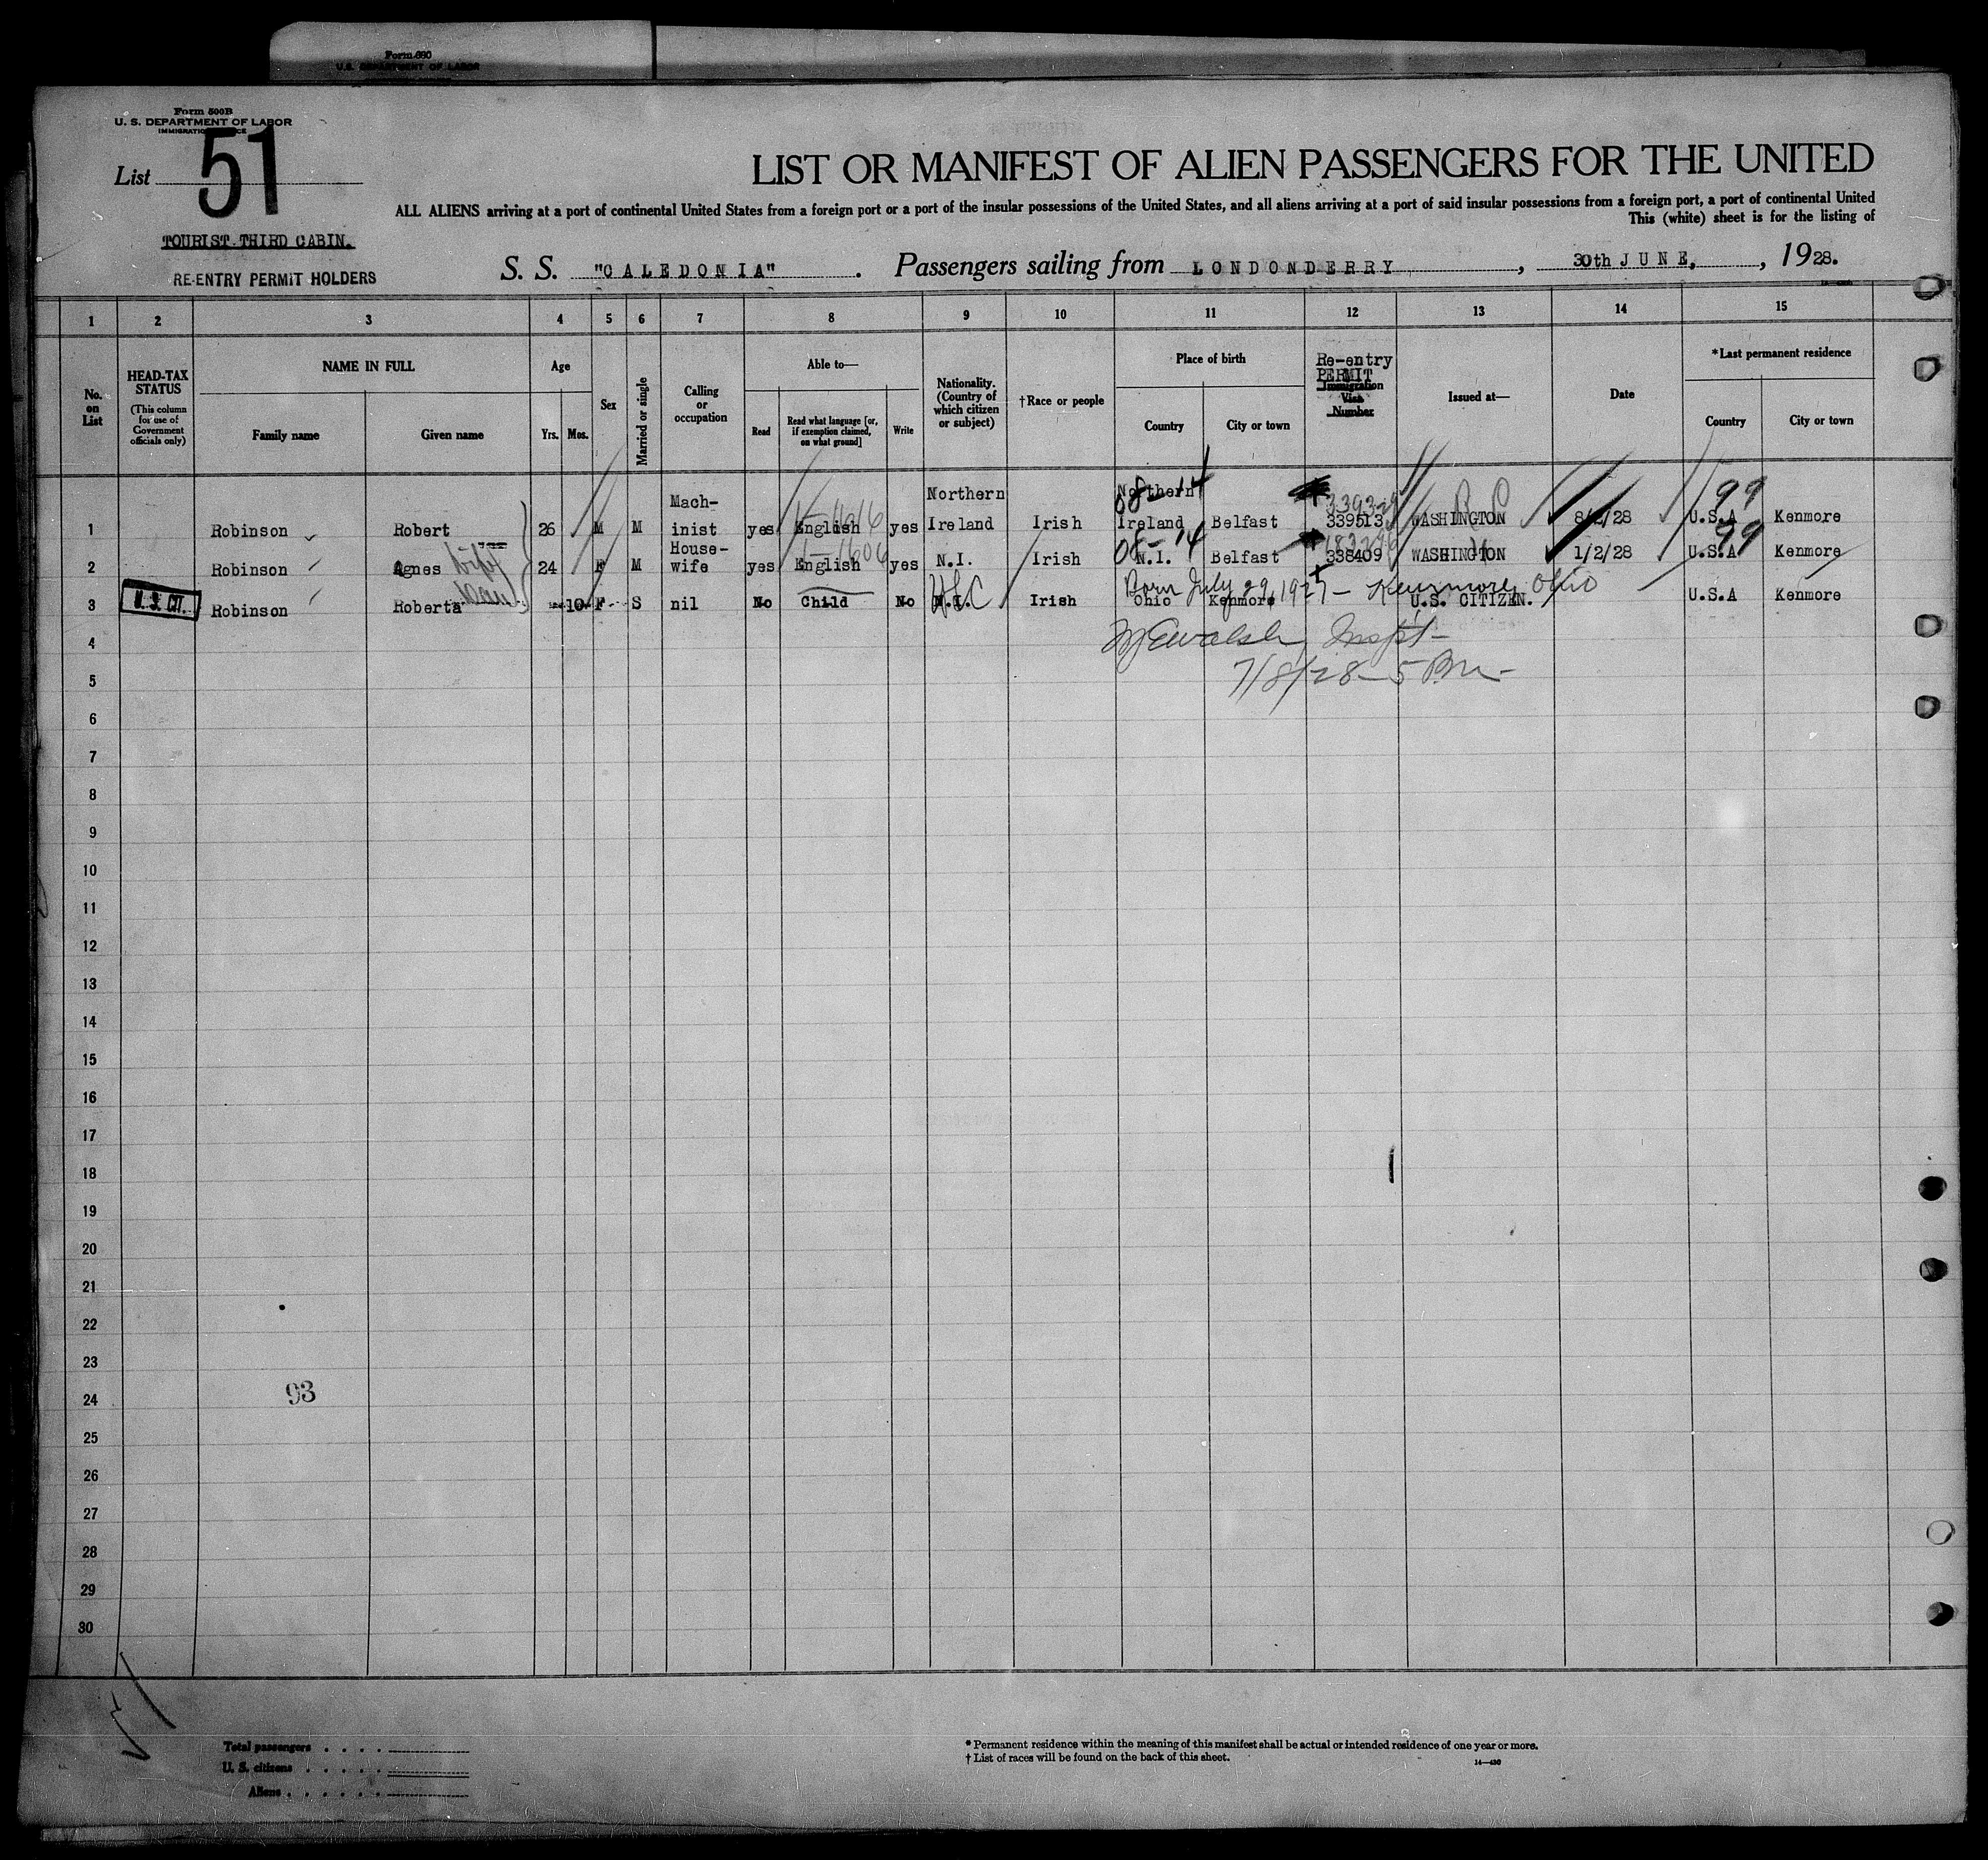 Form 680
U.S. DEPARTMENT OF LABOR
Form 500B
U. S. DEPARTMENT OF LABOR
List 51
LIST OR MANIFEST OF ALIEN PASSENGERS FOR THE UNITED
ALL ALIENS arriving at a port of continental United States from a foreign port or a port of the insular possessions of the United States, and all aliens arriving at a port of said insular possessions from a foreign port, a port of continental United
This (white) sheet is for the listing of
TOURIST THIRD CABIN.
RE-ENTRY PERMIT HOLDERS
S. S. "CALEDONIA" . Passengers sailing from LONDONDERRY , 30th JUNE, , 1928.
1 2 3 4 5 6 7 8 9 10 11 12 13 14 15
No. on List
HEAD-TAX STATUS
(This column for use of Government officials only)
NAME IN FULL
Family name Given name
Age
Yrs. Mos.
Sex
Married or single
Calling or occupation
Able to—
Read
Read what language [or, if exemption claimed, on what ground]
Write
Nationality. (Country of which citizen or subject)
†Race or people
Place of birth
Country City or town
Re-entry PERMIT
Immigration Visa Number
Issued at—
Date
*Last permanent residence
Country City or town
1 Robinson Robert 26 M M Mach-inist yes English yes Northern Ireland Irish Northern Ireland Belfast 339513 WASHINGTON 8/2/28 U.S.A Kenmore
08-14 99
2 Robinson Agnes wife 24 F M House-wife yes English yes N.I. Irish N.I. Belfast 338409 WASHINGTON 1/2/28 U.S.A Kenmore
08-14 99
3 U.S. CIT. Robinson Roberta 10 F S nil No Child No N.I. Irish Ohio Kenmore U.S. CITIZEN. U.S.A Kenmore
Born July 29, 1927 - Kenmore, Ohio
Inspt-
7/8/28 - 5 Pm -
4
5
6
7
8
9
10
11
12
13
14
15
16
17
18
19
20
21
22
23
24 93
25
26
27
28
29
30
Total passengers . . . .
U. S. citizens . . . . .
Aliens . . . . . .
* Permanent residence within the meaning of this manifest shall be actual or intended residence of one year or more.
† List of races will be found on the back of this sheet.
14—430